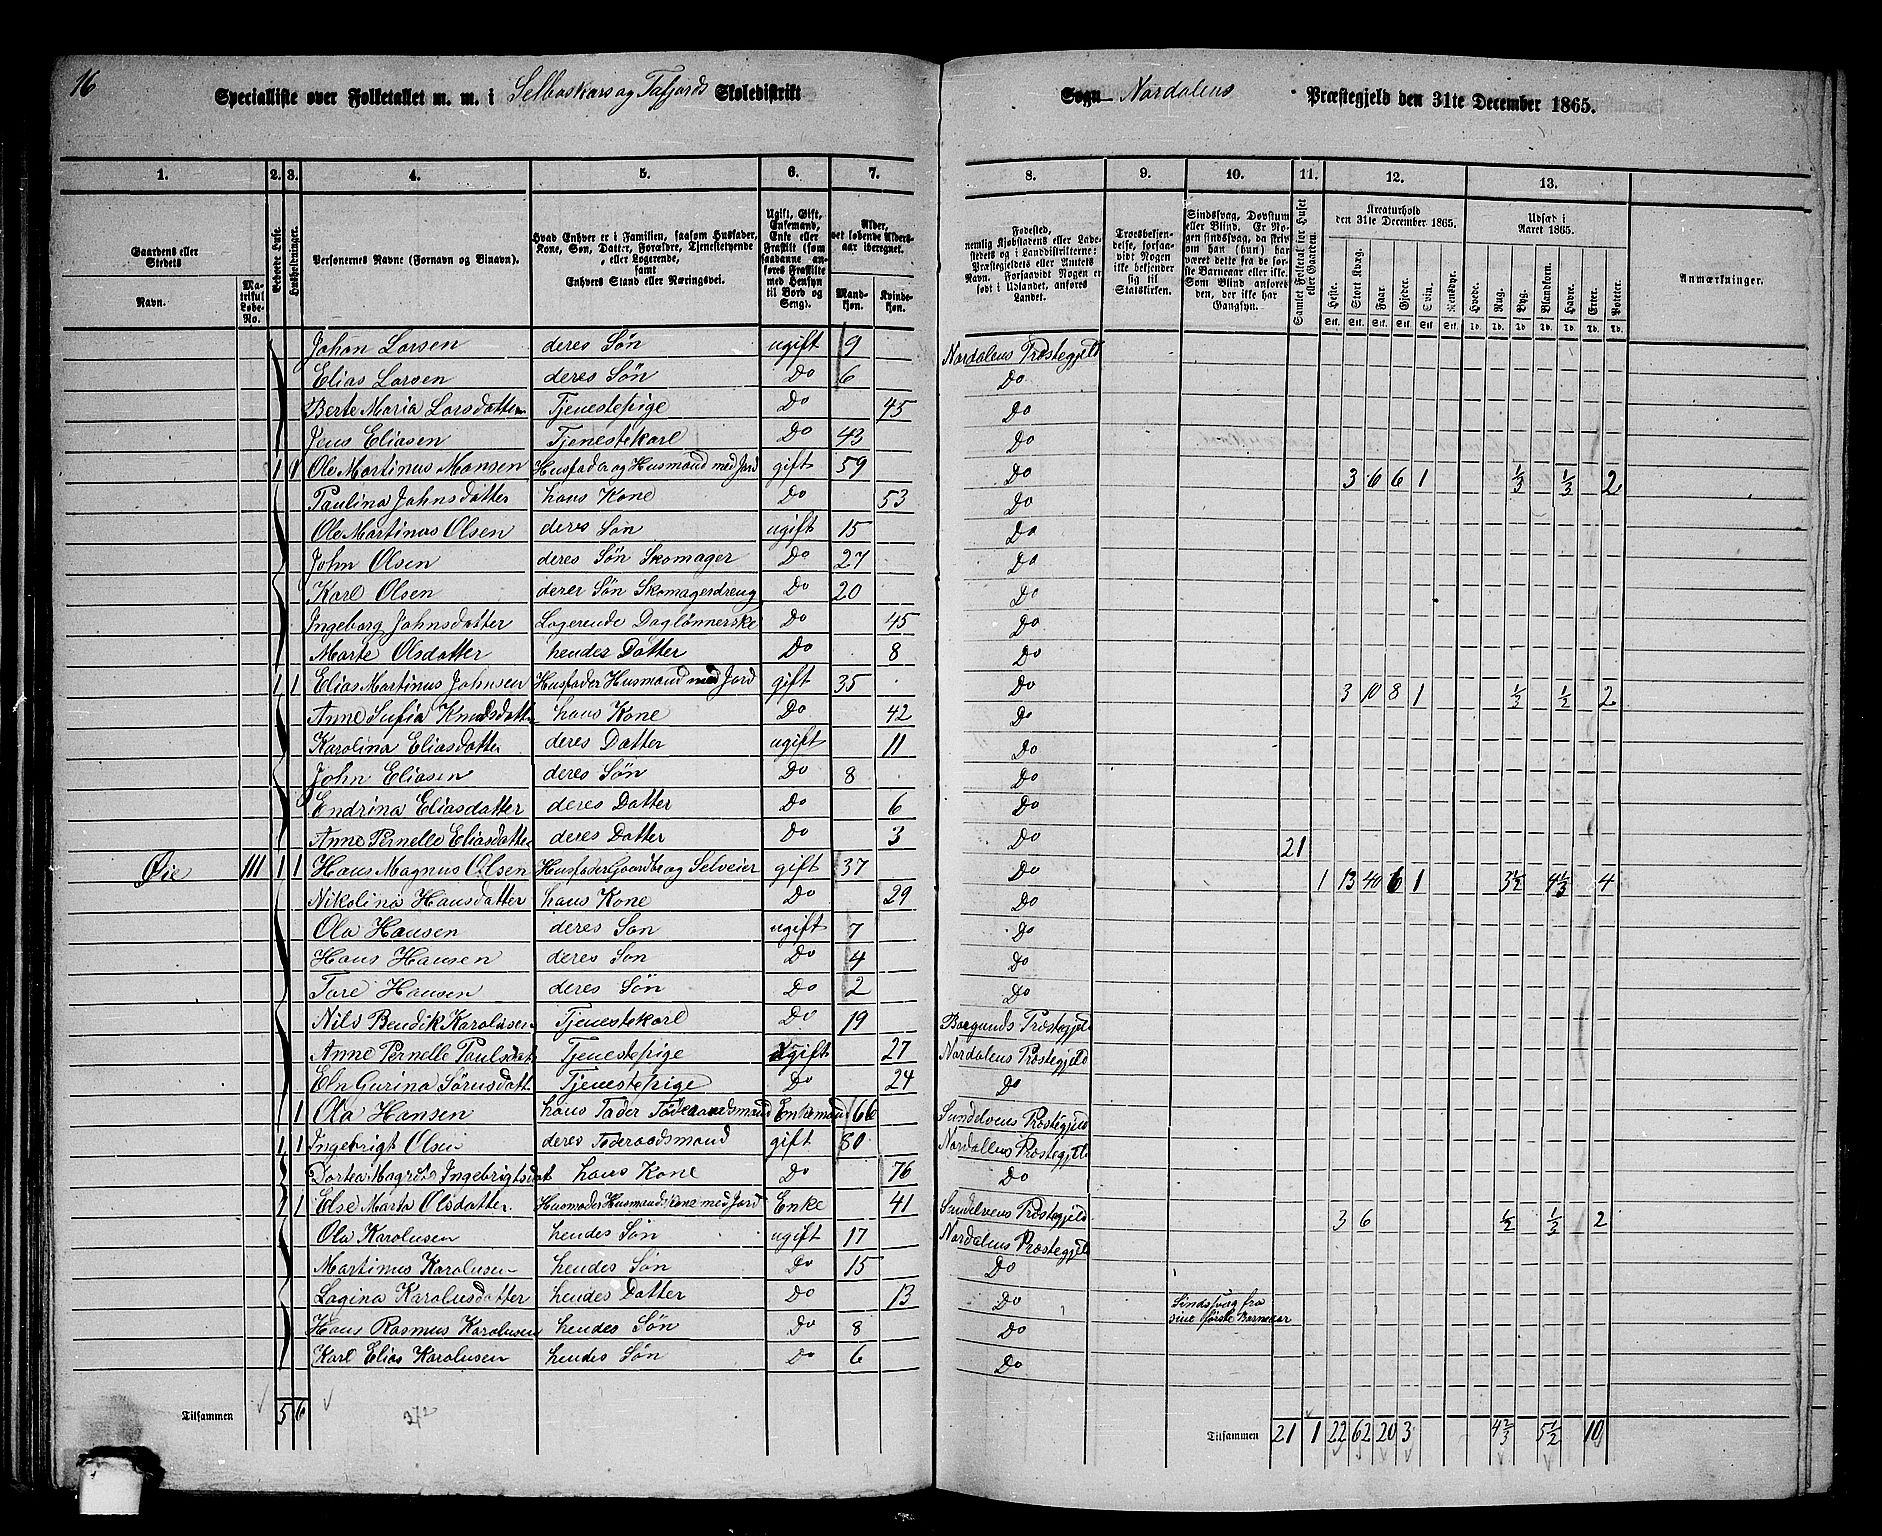 16
Specialliste over Folketallet m. m. i Selboskars og Tafjords Skoledistrikt
Sogn Nordalens Præstegjeld den 31te December 1865.
1. 2. 3. 4. 5. 6. 7. 8. 9. 10. 11. 12. 13.
Gaardens eller Stedets
Navn.
Matrikul Løbe-No.
Beboede Huse.
Husholdninger.
Personernes Navne (Fornavn og Binavn).
Hvad Enhver er i Familien, saasom Husfader, Kone, Søn, Datter, Forældre, Tjenestetyende, eller Logerende, samt Enhvers Stand eller Næringsvei.
Ugift, Gift, Enkemand, Enke eller Fraskilt (som saadanne anføres Fraskilte med Hensyn til Bord og Seng).
Alder, det løbende Aldersaar iberegnet.
Mandkøn.
Kvindekøn.
Fødested, nemlig Kjøbstadens eller Ladestedets eller i Landdistrikterne: Præstegjeldets eller Amtets Navn. Forsaavidt Nogen er født i Udlandet, anføres Landet.
Troesbekjendelse, forsaavidt Nogen ikke bekjender sig til Statskirken.
Sindssvag, Døvstum eller Blind. Er Nogen sindssvag, da skrives om han (hun) har været dette fra de første Barneaar eller ikke. Som Blind anføres den, der ikke har Gangsyn.
Samlet Folketal for Huset eller Gaarden.
Kreaturhold den 31te December 1865.
Heste. Stort Kvæg. Faar. Gjeder. Svin. Rensdyr.
Stk. Stk. Stk. Stk. Stk. Stk.
Udsæd i Aaret 1865.
Hvede. Rug. Byg. Blandkorn. Havre. Erter. Poteter.
Td. Td. Td. Td. Td. Td. Td.
Anmærkninger.
Johan Larsen deres Søn ugift 9 Nordalens Præstegjeld
Elias Larsen deres Søn Do 6 Do
Berte Maria Larsdatter Tjenestepige Do 45 Do
Jens Eliasen Tjenestekarl Do 43 Do
1 1 Ole Martinus Monsen Husfader og Husmand med Jord gift 59 Do 3 6 6 1 1/3 1/3 2
Paulina Johnsdatter hans Kone Do 53 Do
Ole Martinus Olsen deres Søn ugift 15 Do
John Olsen deres Søn Skomager Do 27 Do
Karl Olsen deres Søn Skomagerdreng Do 20 Do
Ingeborg Johnsdatter Logerende Daglønnerske Do 45 Do
Marte Olsdatter hendes Datter Do 8 Do
1 1 Elias Martinus Johnsen Husfader Husmand med Jord gift 35 Do 3 10 8 1 1/3 1/2 2
Anne Sufia Knudsdatter hans Kone Do 42 Do
Karolina Eliasdatter deres Datter ugift 11 Do
John Eliasen deres Søn Do 8 Do
Endrina Eliasdatter deres Datter Do 6 Do
Anne Pernelle Eliasdatter deres Datter Do 3 Do 21
Øie 111 1 1 Hans Magnus Olsen Husfader Gaardbr og Selveier gift 37 Do 1 13 40 6 1 3 1/2 4 1/3 4
Nikolina Hansdatter hans Kone Do 29 Do
Ola Hansen deres Søn ugift 7 Do
Hans Hansen deres Søn Do 4 Do
Tore Hansen deres Søn Do 2 Do
Nils Bendik Karolusen Tjenestekarl Do 19 Borgunds Præstegjeld
Anne Pernelle Paulsdat Tjenestepige ugift 27 Nordalens Præstegjeld
Eln Gurina Sørnsdatt Tjenestepige Do 24 Do
1 Ola Hansen hans Fader Føderaadsmand Enkemand 66 Sundelvens Præstegjeld
1 1 Ingebrigt Olsen deres Føderaadsmand gift 80 Nordallens Præstegjeld
Dortea Magrete Ingebrigtsdat hans Kone Do 76 Do
1 1 Else Marta Olsdatter Husmoder Husmandskone med Jord Enke 41 Sundelvens Præstegjeld 3 6 1/2 1/2 2
Ola Karolusen hendes Søn ugift 17 Nordalens Præstegjeld
Martinus Karolusen hendes Søn Do 15 Do
Lagina Karolusdatter hendes Datter Do 13 Do Sindssvag fra sine første Barneaar
Hans Rasmus Karolusen hendes Søn Do 8 Do
Karl Elias Karolusen hendes Søn Do 6 Do
Tilsammen 5 6 Tilsammen 21 1 22 62 20 3 4 2/3 5 1/2 10